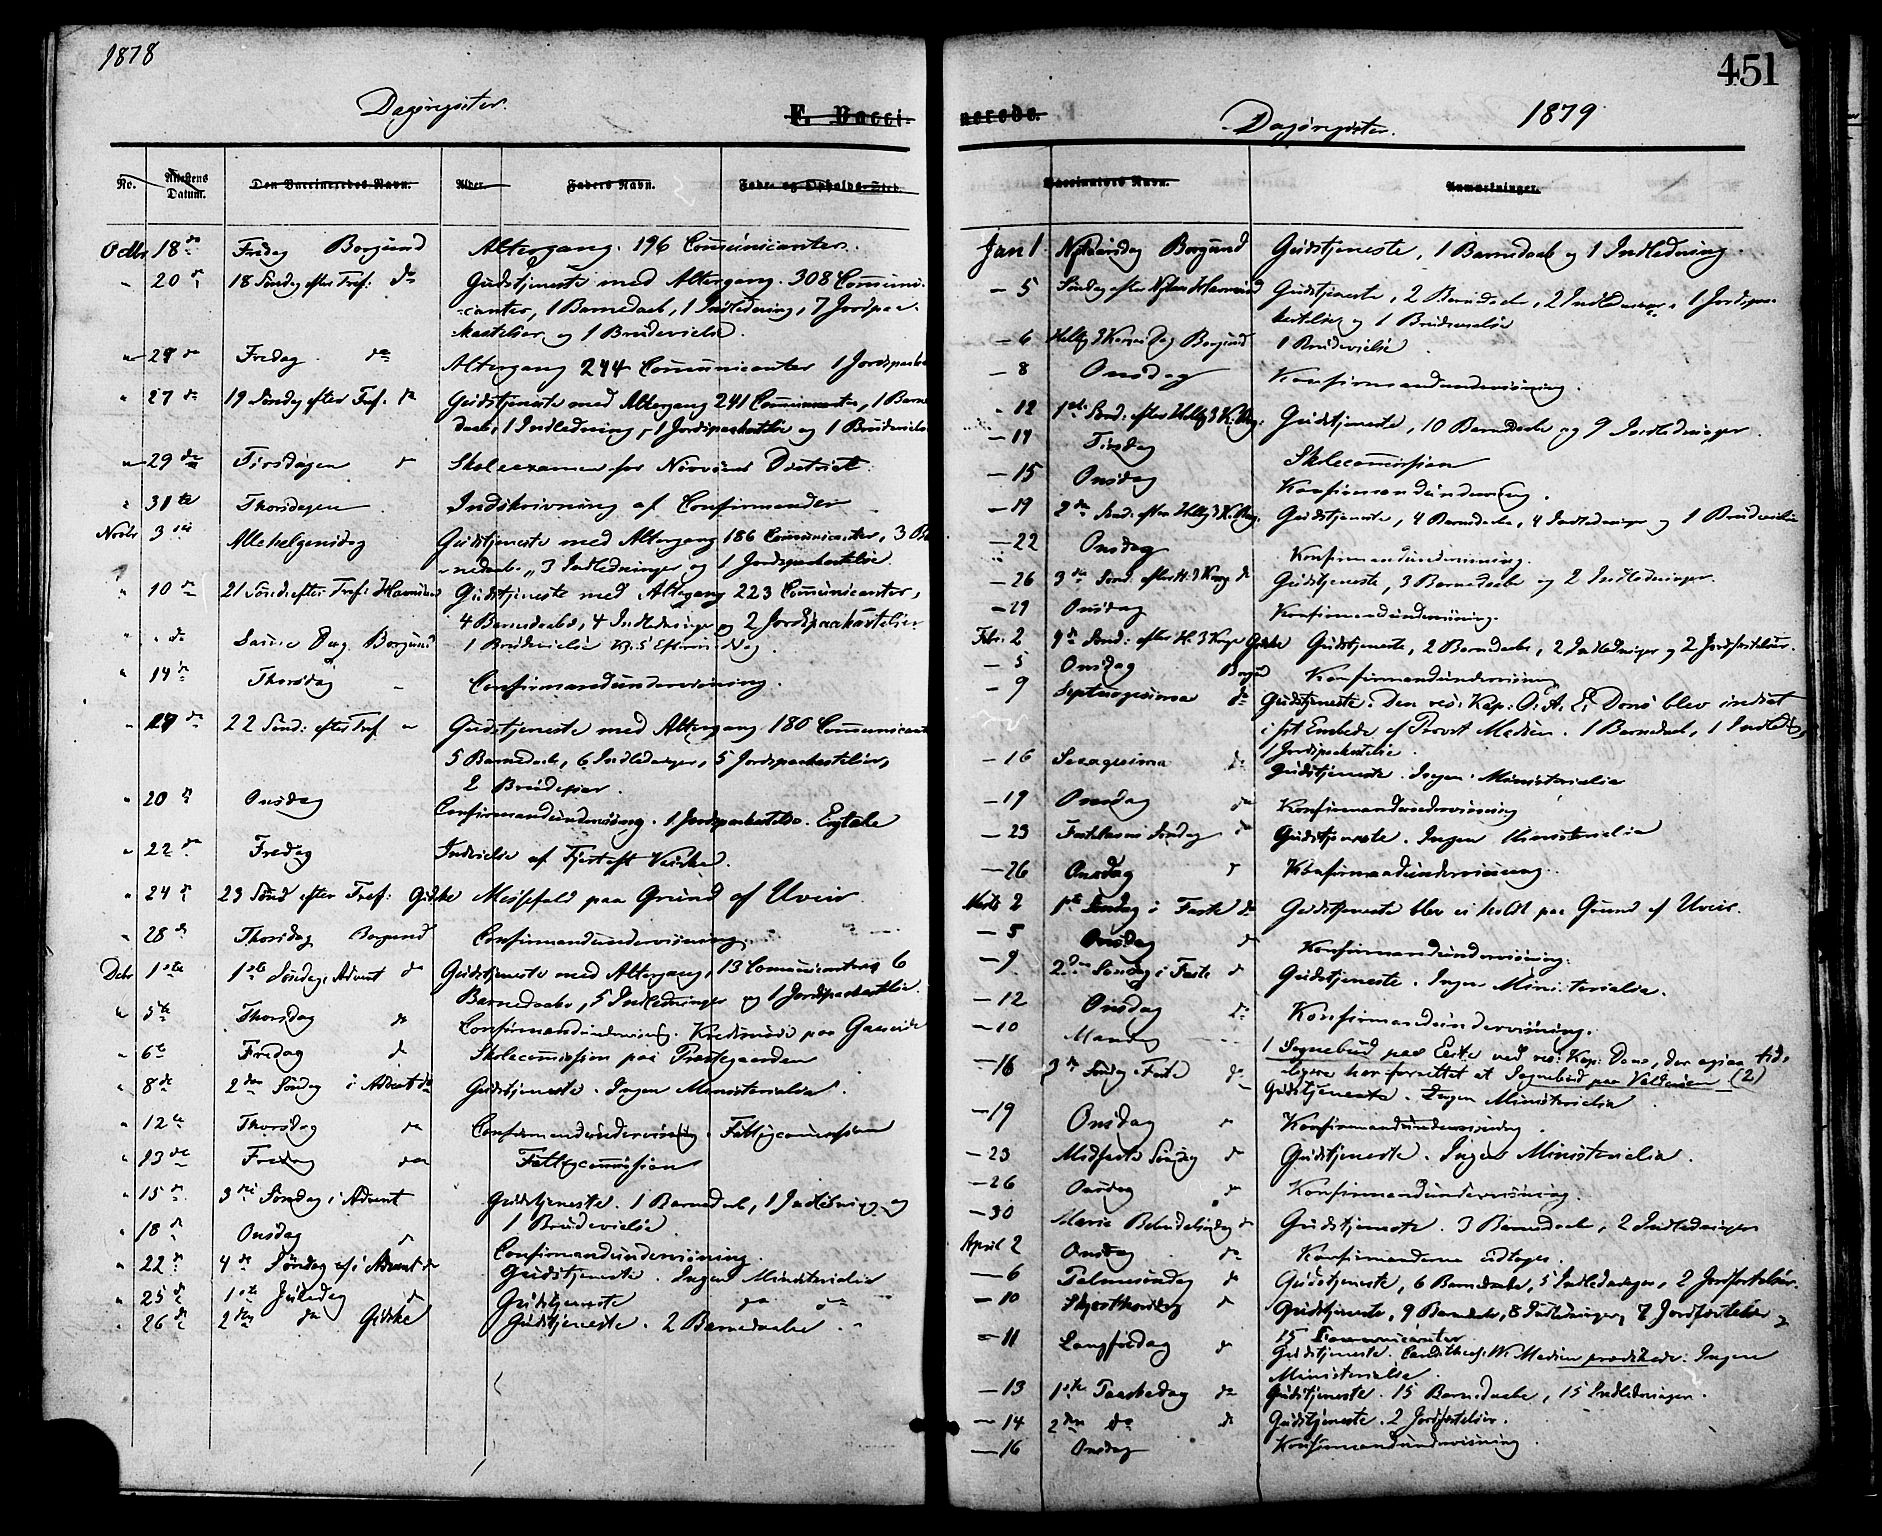 1878
451
Dagsregister.
F. Vacci-
nerede.
Dagsregister.
1879
No.
Attestens Datum.
Den Vaccineredes Navn.
Alder.
Faders Navn.
Føde- og Opholds-Sted.
Vaccinators Navn.
Anmærkninger.
Octbr 18de Fredag Borgund Altergang. 196 Communicanter.
" 20 18 Søndag efter Tref: do Gudstjeneste med Altergang. 308 Communi-
-canter, 1 Barnedaab, 1 Indledning, 7 Jordpaa-
kastelser og 1 Brudevielse.
" Fredag do Altergang 244 Communicanter 1 Jordpaak
" 27 de 19 Søndag efter Tref. do Gudstjeneste med Altergang 241 Communicanter, 1 Barne
daab, 1 Indledning, 1 Jordpaakastelse og 1 Brudevielse
" 29 de Tirsdagen do Skoleexamen for District.
" 31te Thorsdagen Indskrivning af Confirmander
Novbr 3die Allehelgensdag Gudstjeneste med Altergang 186 Communicanter, 3 Ba
-nedaab, 3 Indledninger og 1 Jordpaakastelse
" 10 de 21 Sønd: efter Tref: Gudstjeneste med Altergang 223 Communicanter,
4 Barnedaabe, 4 Indledninger og 2 Jordpaakastelser
" " do Samme Dag Borgund 1 Brudevielse Kl. 5 Efterm.
" 14 de Thorsdag " Confirmandundervisning.
" de 22 Sønd: efter Tref " Gudstjeneste med Altergang 180 Communicant
5 Barnedaab, 6 Indledninger, 5 Jordpaakastelser,
2 Brudepar.
" 20 de Onsdag Confirmandundervisning. 1 Jordpaakastelse.
" 22 de Fredag Indvielse af Kirke.
" 24 de 23 Sønd efter Tref: Giske Messefald paa Grund af Uveir.
" 28 de Thorsdag Borgund Confirmandundervisning.
Debr 1ste 1ste Søndag i Advent do Gudstjeneste med Altergang, 13 Communicanter, 6
Barnedaabe, 5 Indledninger og 1 Jordpaakastelse.
" 5te Thorsdag do Confirmandunderviisn. paa
" 6te Fredag do Skolecommission paa Præstegaarden
" 8de 2den Søndag i Advent do Gudstjeneste. Ingen Ministerialia.
" 12te Thorsdag do Confirmandundervisning. Fattigcommission
" 13de Fredag do Fattigcommission
" 15de 3die Søndag i Advent Gudstjeneste. 1 Barnedaab, 1 Indledning og
1 Brudevielse
" 18 de Onsdag do Confirmandundervisning.
" 22 de 4de Søndag i Advent do Gudstjeneste. Ingen Ministerialia
" 25 de 1ste Juledag do Gudstjeneste do do
" 26 de 2den do Giske Gudstjeneste. 2 Barnedaabe.
Jan 1 Nytaarsdag Borgund Gudstjeneste, 1 Barnedaab og 1 Indledning.
— 5 Søndag efter Nytaar Gudstjeneste, 2 Barnedaab, 2 Indledninger, 1 Jordpaa-
kastelse og 1 Brudevielse
— 6 Hellig 3 Kongers Dag Borgund 1 Brudevielse.
— 8 Onsdag Konfirmandundervisning.
— 12 1ste Sønd: efter Hellig 3 K. Gudstjeneste, 10 Barnedaabe og 9 Indledninger.
— 14 Tirsdag Skolecommission
— 15 Onsdag Konfirmandunderv.
— 19 2den Sønd: efter Hellig 3 K. Gudstjeneste, 4 Barnedaabe, 4 Indledninger og 1 Brudevielse
— 22 Onsdag Konfirmandundervisning.
— 26 3die Sønd. efter H. 3 Kong. do Gudstjeneste, 3 Barnedaab og 2 Indledninger.
— 29 Onsdag Konfirmandundervisning.
Febr. 2 4de Sønd: efter H. 3 Konger Giske Gudstjeneste, 2 Barnedaab, 2 Indledninger og 2 Jordfæstelser.
— 5 Onsdag Borgund Konfirmandundervisning
— 9 Septuagesima do Gudstjeneste. Den res: Kap: O. A. E. Dons blev indsat
i sit Embede af Provst Madsen. 1 Barnedaab, 1 Indledn.,
1 Jordpaakastelse.
— 16 Sexagesima do Gudstjeneste. Ingen Ministerialia
— 19 Onsdag do Konfirmandundervisning
— 23 Fastelavns Søndag do Gudstjeneste. Ingen Ministerialia
— 26 Onsdag do Konfirmandundervisning.
Marts 2 1ste Søndag i Faste do Gudstjeneste blev ei holdt paa Grund af Uveir.
— 5 Onsdag do Konfirmandundervisning.
— 9 2den Søndag i Faste do Gudstjeneste. Ingen Ministerialia.
— 12 Onsdag do Konfirmandundervisning.
— 10 Mandag 1 Sognebud paa ved res: Kap: Dons, der ogsaa tid-
ligere har forrettet et Sognebud paa Valderøen (2)
— 16 3die Søndag i Faste do Gudstjeneste. Ingen Ministerialia
— 19 Onsdag do Konfirmandundervisning.
— 23 Midfaste Søndag do Gudstjeneste. Ingen Ministerialia.
— 26 Onsdag do Konfirmandundervisning.
— 30 Mariæ Bebudelsesdag do Gudstjeneste. 3 Barnedaab, 2 Indledninger
April 2 Onsdag do Konfirmanderne udtoges.
— 6 Palmesøndag do Gudstjeneste, 6 Barnedaabe, 5 Indledninger, 2 Jordfæstelser.
— 10 Skjærthorsdag do Gudstjeneste, 9 Barnedaabe, 8 Indledninger, 7 Jordfæstelser og
15 Communicanter
— 11 Langfredag do Gudstjeneste. Cand. theol. W. Madsen prædikede. Ingen
Ministerialia.
— 13 1ste Paaskedag do Gudstjeneste. 15 Barnedaabe, 15 Indledninger.
— 14 2den do do Gudstjeneste. 2 Jordfæstelser.
— 16 Onsdag Konfirmandundervisning.